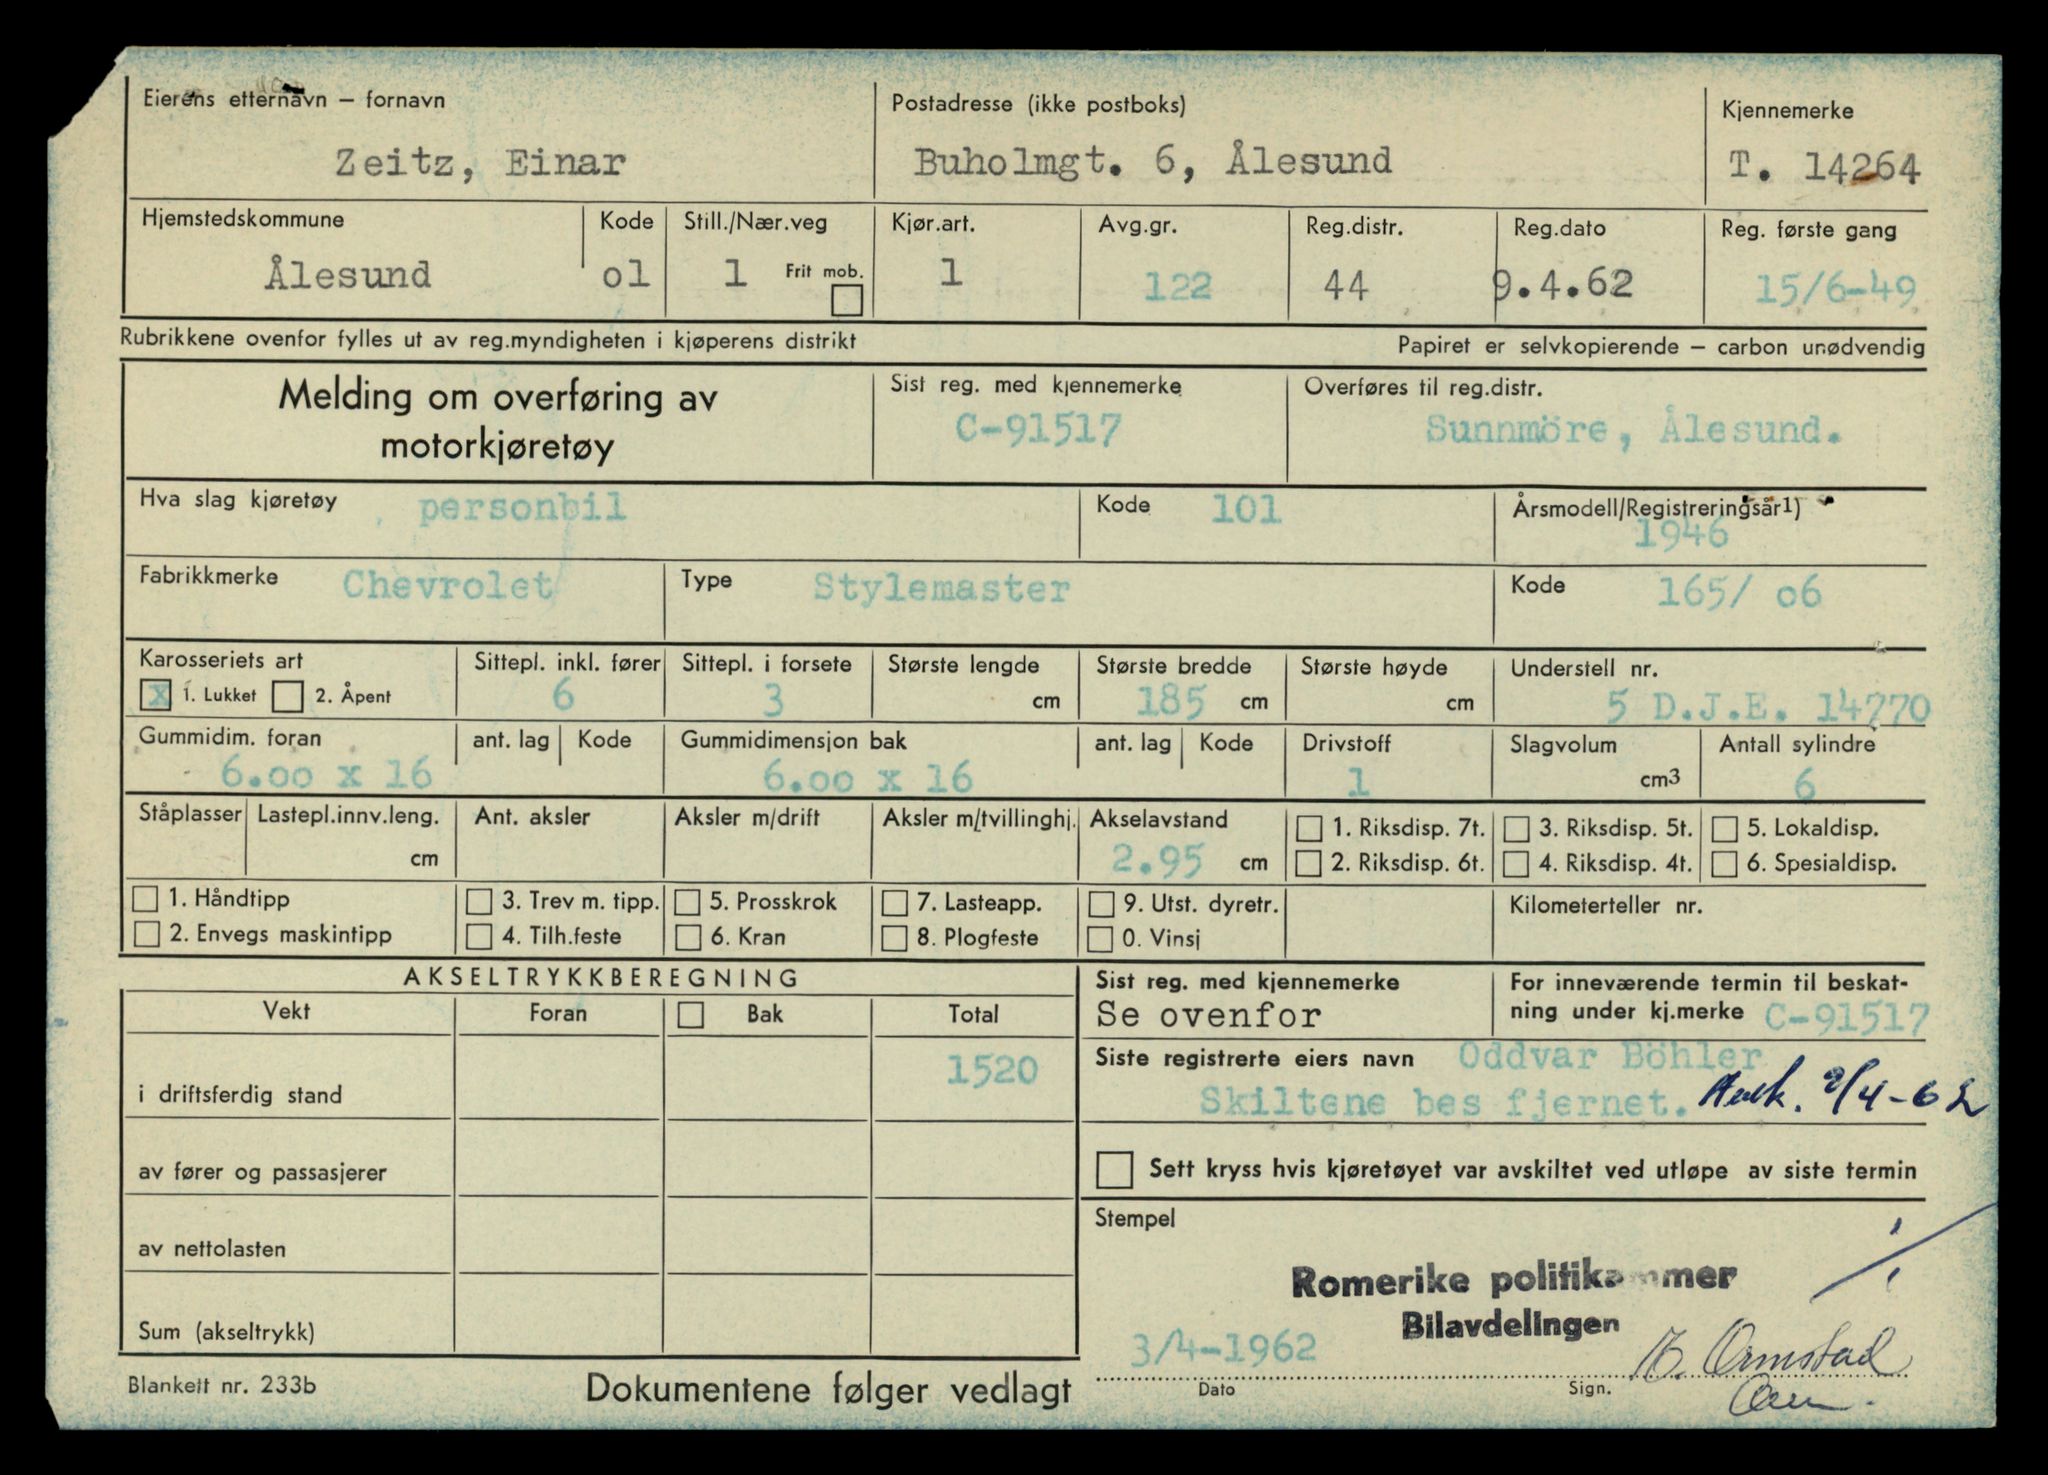 Eierens etternavn – fornavn
Zeitz, Einar
Postadresse (ikke postboks)
Buholmgt. 6, Ålesund
Kjennemerke
T. 14264
Hjemstedskommune
Ålesund
Kode
o1
Still./Nær.veg
1 Frit mob.
Kjør.art.
1
Avg.gr.
122
Reg.distr.
44
Reg.dato
9.4.62
Reg. første gang
15/6-49
Rubrikkene ovenfor fylles ut av reg.myndigheten i kjøperens distrikt
Papiret er selvkopierende – carbon unødvendig
Melding om overføring av
motorkjøretøy
Sist reg. med kjennemerke
C-91517
Overføres til reg.distr.
Sunnmöre, Ålesund.
Hva slag kjøretøy personbil
Kode 101
Årsmodell/Registreringsår1)
1946
Fabrikkmerke Chevrolet
Type Stylemaster
Kode 165/ o6
Karosseriets art
x 1. Lukket 2. Åpent
Sittepl. inkl. fører
6
Sittepl. i forsete
3
Største lengde
cm
Største bredde
185 cm
Største høyde
cm
Understell nr.
5 D.J.E. 14770
Gummidim. foran
6.oo x 16
ant. lag Kode
Gummidimensjon bak
6.oo x 16
ant. lag Kode
Drivstoff
1
Slagvolum
cm3
Antall sylindre
6
Ståplasser
Lastepl.innv.leng.
cm
Ant. aksler
Aksler m/drift
Aksler m/tvillinghj.
Akselavstand
2.95 cm
1. Riksdisp. 7t. 3. Riksdisp. 5t. 5. Lokaldisp.
2. Riksdisp. 6t. 4. Riksdisp. 4t. 6. Spesialdisp.
1. Håndtipp 3. Trev m. tipp. 5. Prosskrok 7. Lasteapp. 9. Utst. dyretr.
2. Envegs maskintipp 4. Tilh.feste 6. Kran 8. Plogfeste 0. Vinsj
Kilometerteller nr.
AKSELTRYKKBEREGNING
Vekt Foran Bak Total
i driftsferdig stand 1520
av fører og passasjerer
av nettolasten
Sum (akseltrykk)
Sist reg. med kjennemerke
Se ovenfor
For inneværende termin til beskat-
ning under kj.merke C-91517
Siste registrerte eiers navn Oddvar Böhler
Skiltene bes fjernet. 9/4-62
Sett kryss hvis kjøretøyet var avskiltet ved utløpe av siste termin
Stempel
Romerike politikammer
Bilavdelingen
3/4-1962
Dato
Sign. Ormstad
Blankett nr. 233b
Dokumentene følger vedlagt